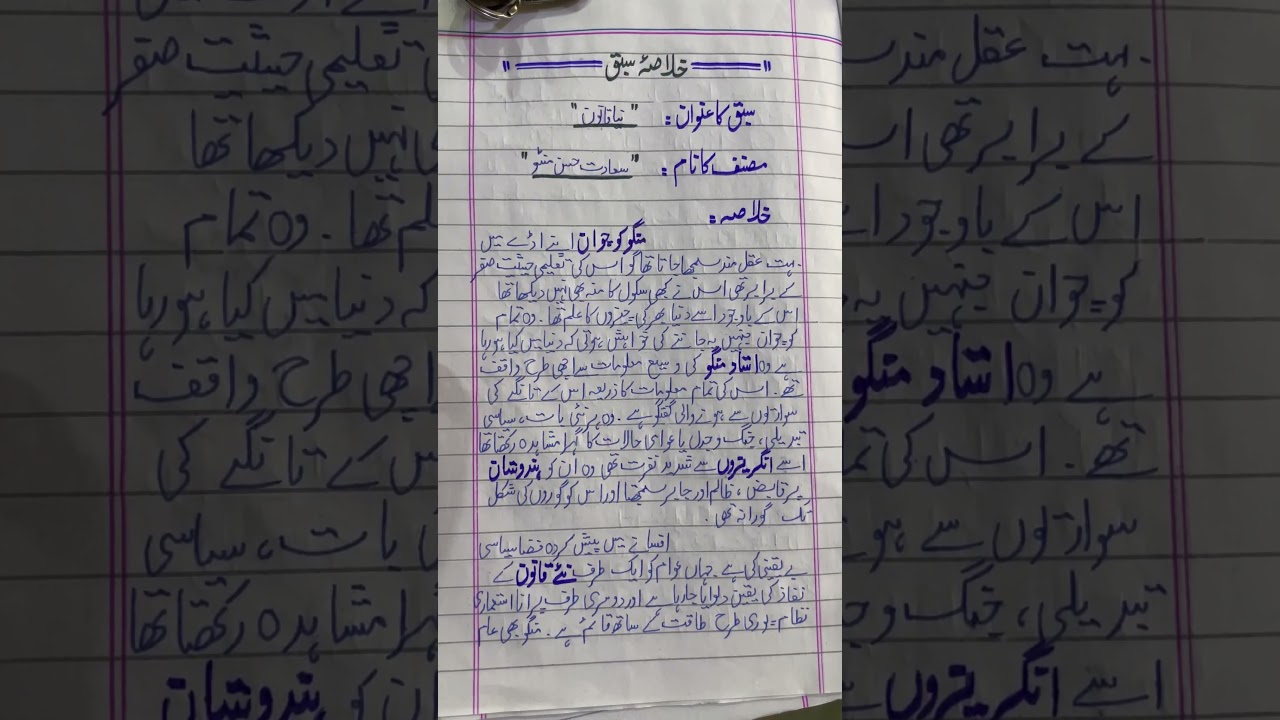 خلاصۂ سبق
سبق کا عنوان : "نیا قانون"
مصنف کا نام : "سعادت حسن منٹو"
خلاصہ :
منگو کوچوان اپنے اڈے میں
بہت عقل مند سمجھا جاتا تھا گو اس کی تعلیمی حیثیت صفر
کے برابر تھی اس نے کبھی سکول کا منہ بھی نہیں دیکھا تھا
اس کے باوجود اسے دنیا بھر کی چیزوں کا علم تھا۔ وہ تمام
کوچوان جنہیں یہ جاننے کی خواہش ہوتی کہ دنیا میں کیا ہو رہا
ہے وہ استاد منگو کی وسیع معلومات سے اچھی طرح واقف
تھے۔ اس کی تمام معلومات کا ذریعہ اس کے تانگے کی
سواریوں سے ہونے والی گفتگو ہے۔ وہ ہر نئی بات، سیاسی
تبدیلی، جنگ و جدل یا عوامی حالات کا گہرا مشاہدہ رکھتا تھا
اسے انگریزوں سے شدید نفرت تھی وہ ان کو ہندوستان
پر قابض، ظالم اور جابر سمجھتا اور اس کو گوروں کی شکل
تک گوارا نہ تھی۔
افسانے میں پیش کردہ فضا سیاسی
بے یقینی کی ہے جہاں عوام کو ایک طرف نئے قانون کے
نفاذ کی یقین دلوایا جا رہا ہے اور دوسری طرف پرانا استعماری
نظام پوری طرح طاقت کے ساتھ قائم ہے۔ منگو بھی عام